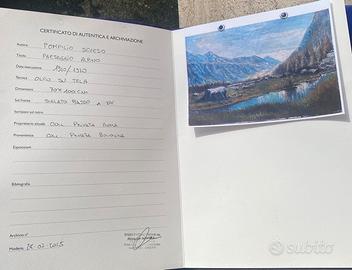 CERTIFICATO DI AUTENTICA E ARCHIVIAZIONE
Autore POMPILIO SEVESO
Titolo PAESAGGIO ALPINO
Data esecuzione 1910/1920
Tecnica OLIO SU TELA
Dimensioni 70 x 100 CM
Sul fronte
Iscrizioni sul retro
Proprietario attuale COLL. PRIVATA
Provenienza COLL. PRIVATA BOLOGNA
Esposizioni
Bibliografia
Archivio n°
Modena
subito